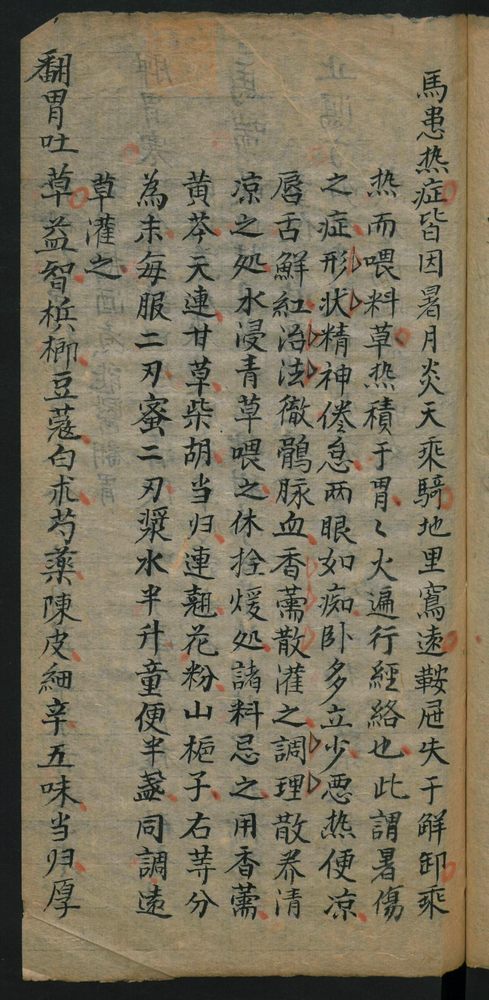 馬患热症皆因暑月炎天乘騎地里窵遠鞍屉失于解卸乘
热而喂料草热積于胃〻火遍行經絡也此謂暑傷
之症形状精神倦怠两眼如痴卧多立少恶热便凉
唇舌鮮紅治法徹鶻脉血香薷散灌之調理散养清
凉之处水浸青草喂之休拴煖处諸料忌之用香薷
黄芩天連甘草柴胡当归連翘花粉山栀子右等分
為末每服二刃蜜二刃漿水半升童便半盏同調遠
草灌之
翻胃吐草益智梹榔豆蔻白朮芍藥陳皮細辛五味当归厚